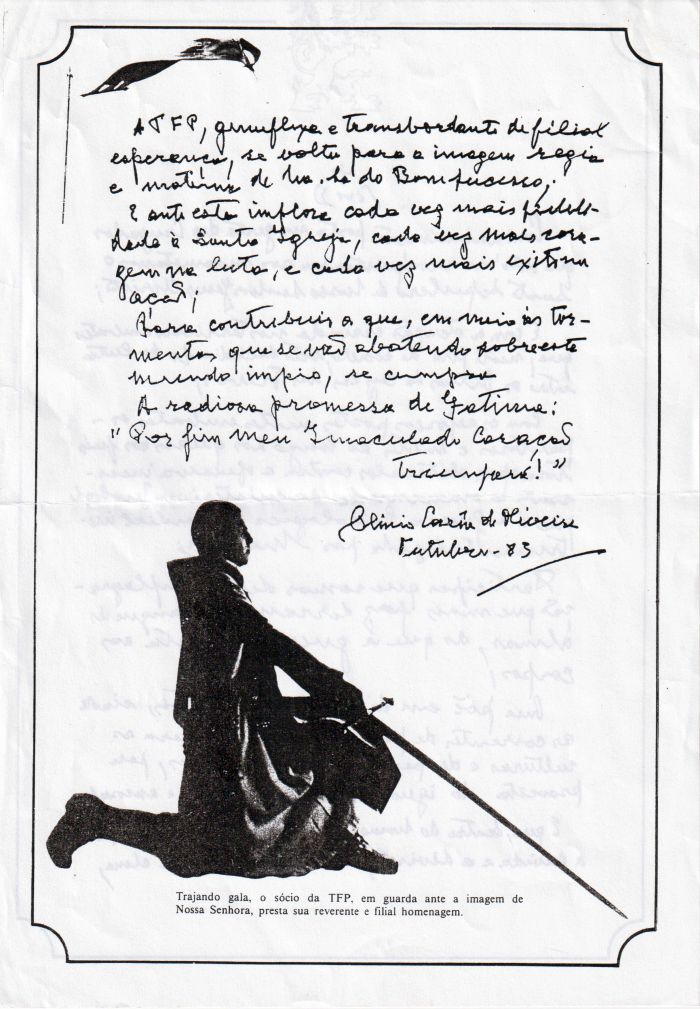 A TFP, genuflexa e transbordante de filial
esperança, se volta para a imagem regia
e materna de Na. Sa. do Bom Sucesso;
E ante esta implora cada vez mais fideli-
dade à Santa Igreja, cada vez mais cora-
gem na luta, e cada vez mais exito na
ação;
Para contribuir a que, em meio às tor-
mentas que se vão abatendo sobre este
mundo impio, se cumpra
A radiosa promessa de Fatima:
"Por fim meu Imaculado Coração
Triunfará!"
Plinio Corrêa de Oliveira
Outubro - 83
Trajando gala, o sócio da TFP, em guarda ante a imagem de
Nossa Senhora, presta sua reverente e filial homenagem.